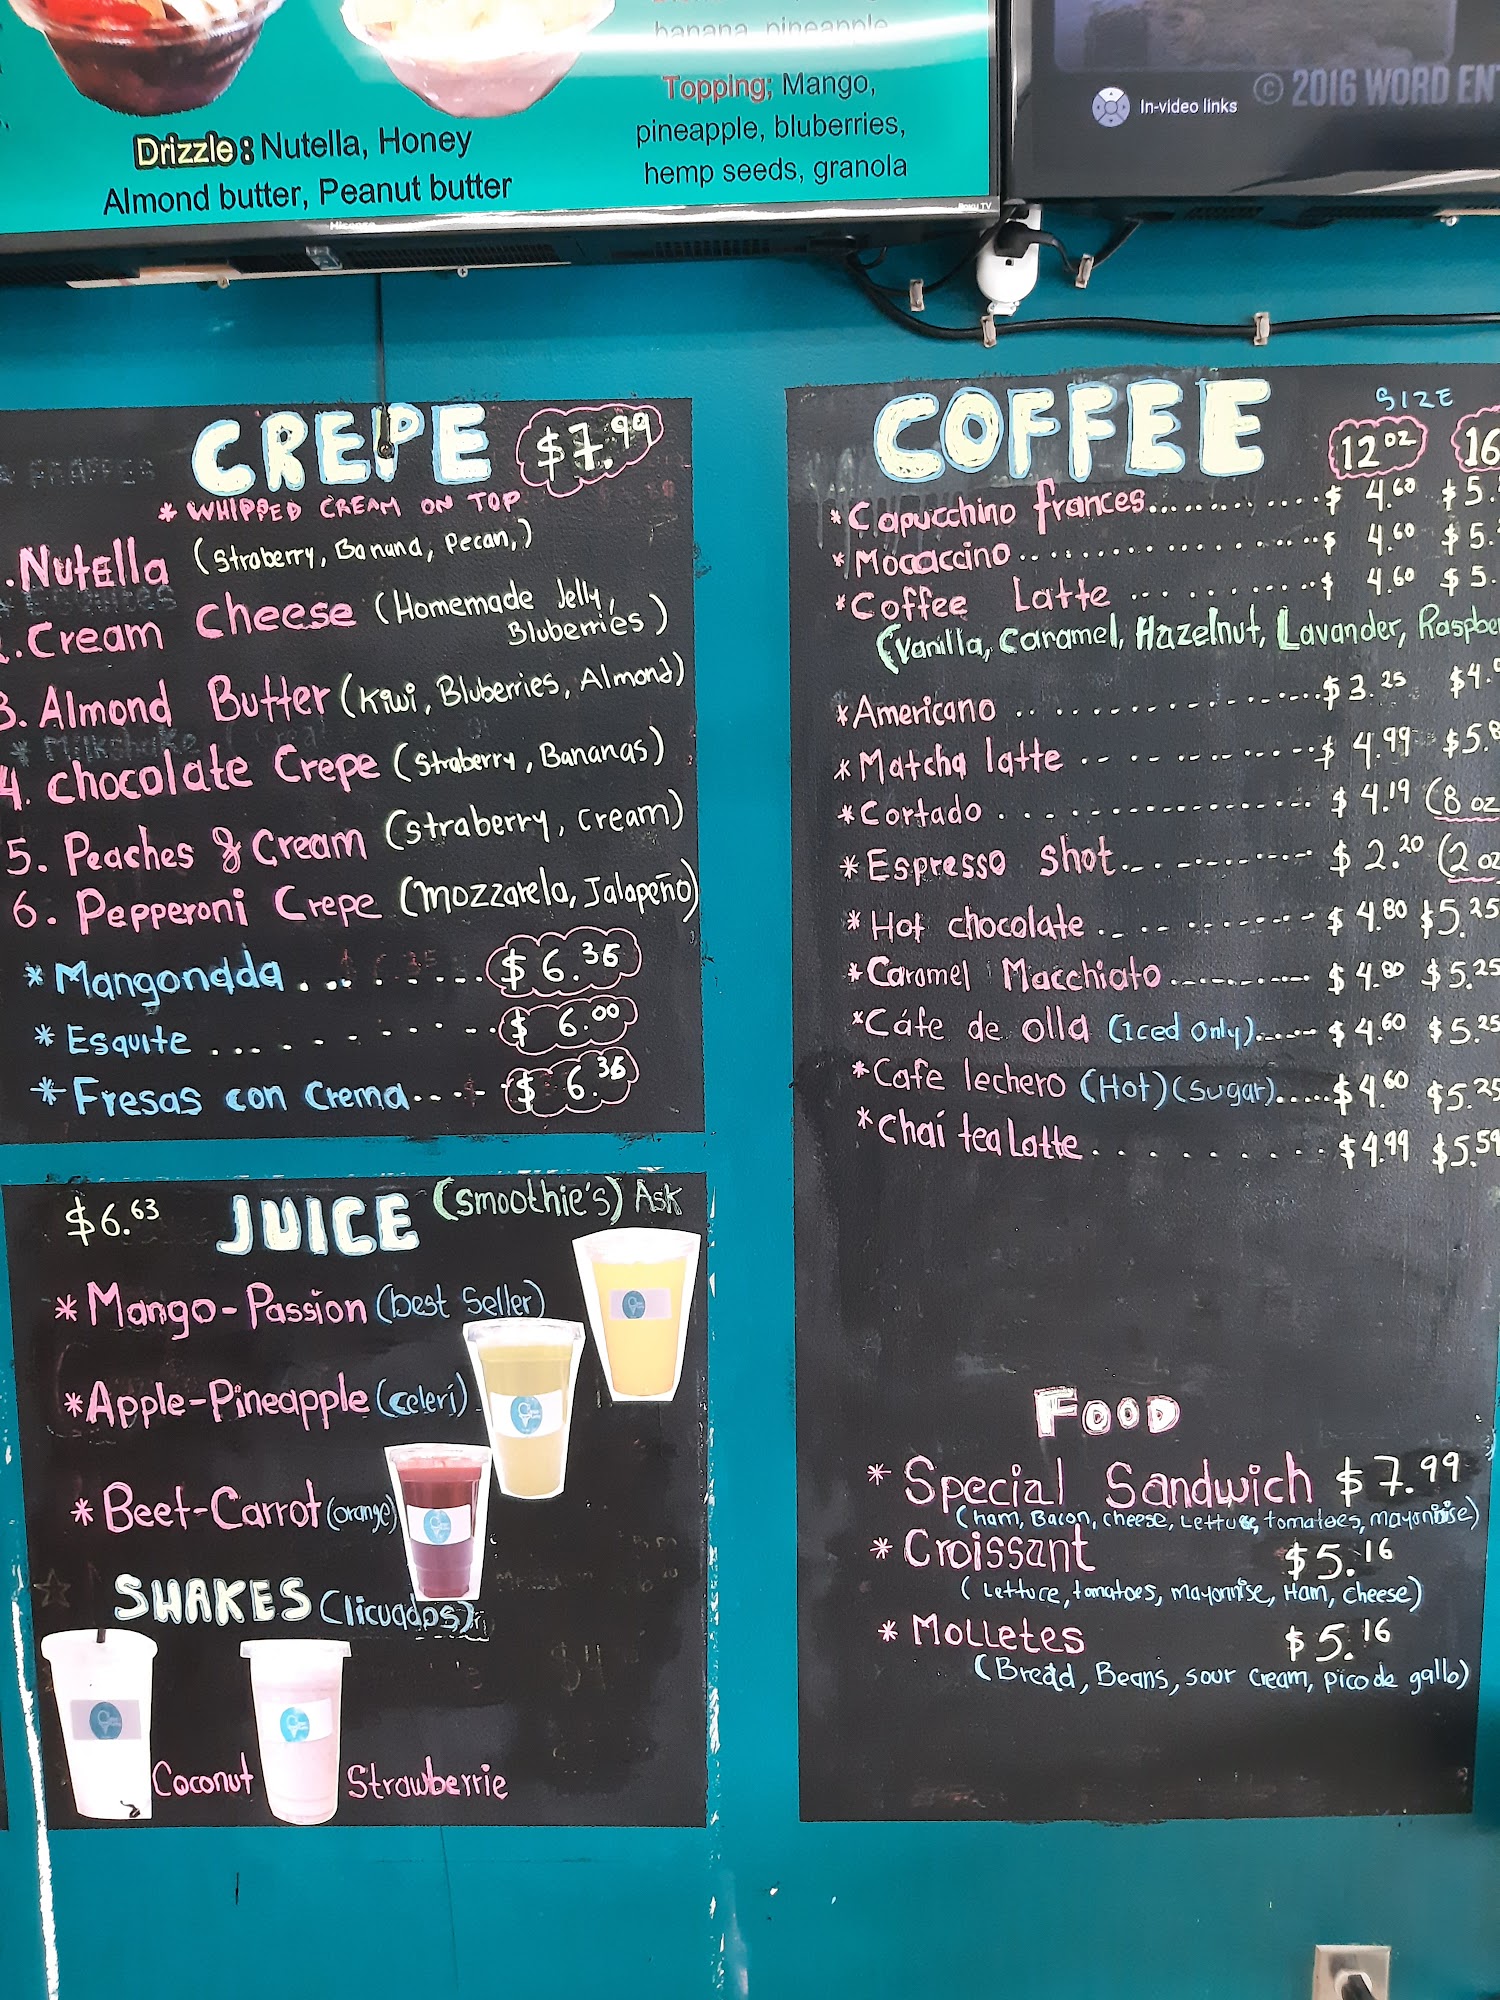 banana, pineapple
Topping; Mango,
pineapple, bluberries,
hemp seeds, granola
Drizzle: Nutella, Honey
Almond butter, Peanut butter
Hisense
Roku TV
In-video links
© 2016 WORD ENT
CREPE $7.99
* WHIPPED CREAM ON TOP
.Nutella (Straberry, Banana, Pecan,)
.Cream Cheese (Homemade Jelly,
Bluberries)
3. Almond Butter (Kiwi, Bluberries, Almond)
4. Chocolate Crepe (Straberry, Bananas)
5. Peaches & Cream (Straberry, Cream)
6. Pepperoni Crepe (Mozzarela, Jalapeño)
* Mangonadda ......... $6.36
* Esquite ......... $6.00
* Fresas con Crema.... $6.36
$6.63 JUICE (Smoothie's) Ask
* Mango-Passion (best Seller)
* Apple-Pineapple (Celeri)
* Beet-Carrot (orange)
SHAKES (licuados)
Coconut
Strawberrie
COFFEE SIZE
12oz 16
* Capucchino frances.......... $ 4.60 $5.
* Moccaccino.......... $ 4.60 $5.
* Coffee Latte .......... $ 4.60 $5.
(Vanilla, Caramel, Hazelnut, Lavander, Raspbe
* Americano .......... $3.25 $4.
* Matcha latte .......... $ 4.99 $5.
* Cortado .......... $ 4.19 (8 oz
* Espresso Shot.......... $ 2.20 (2 oz
* Hot chocolate.......... $ 4.80 $5.25
* Caramel Macchiato.......... $ 4.80 $5.25
* Cáfe de olla (Iced Only)...... $ 4.60 $5.25
* Cafe lechero (Hot) (Sugar)..... $4.60 $5.25
* Chai tea Latte.......... $4.99 $5.59
FOOD
* Special Sandwich $7.99
(Ham, Bacon, cheese, Lettuce, tomatoes, Mayonnise)
* Croissant $5.16
(Lettuce, tomatoes, Mayonnise, Ham, Cheese)
* Molletes $5.16
(Bread, Beans, sour cream, pico de gallo)